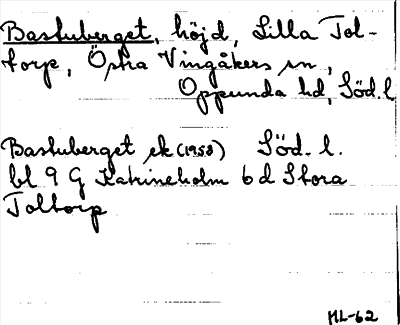 Bastuberget, höjd, Lilla Tol-
torp, Östra Vingåkers sn,
Oppunda hd, Söd. l.
Bastuberget ek (1958) Söd. l.
bl 9 G Katrineholm 6 d Stora
Toltorp
HL-62